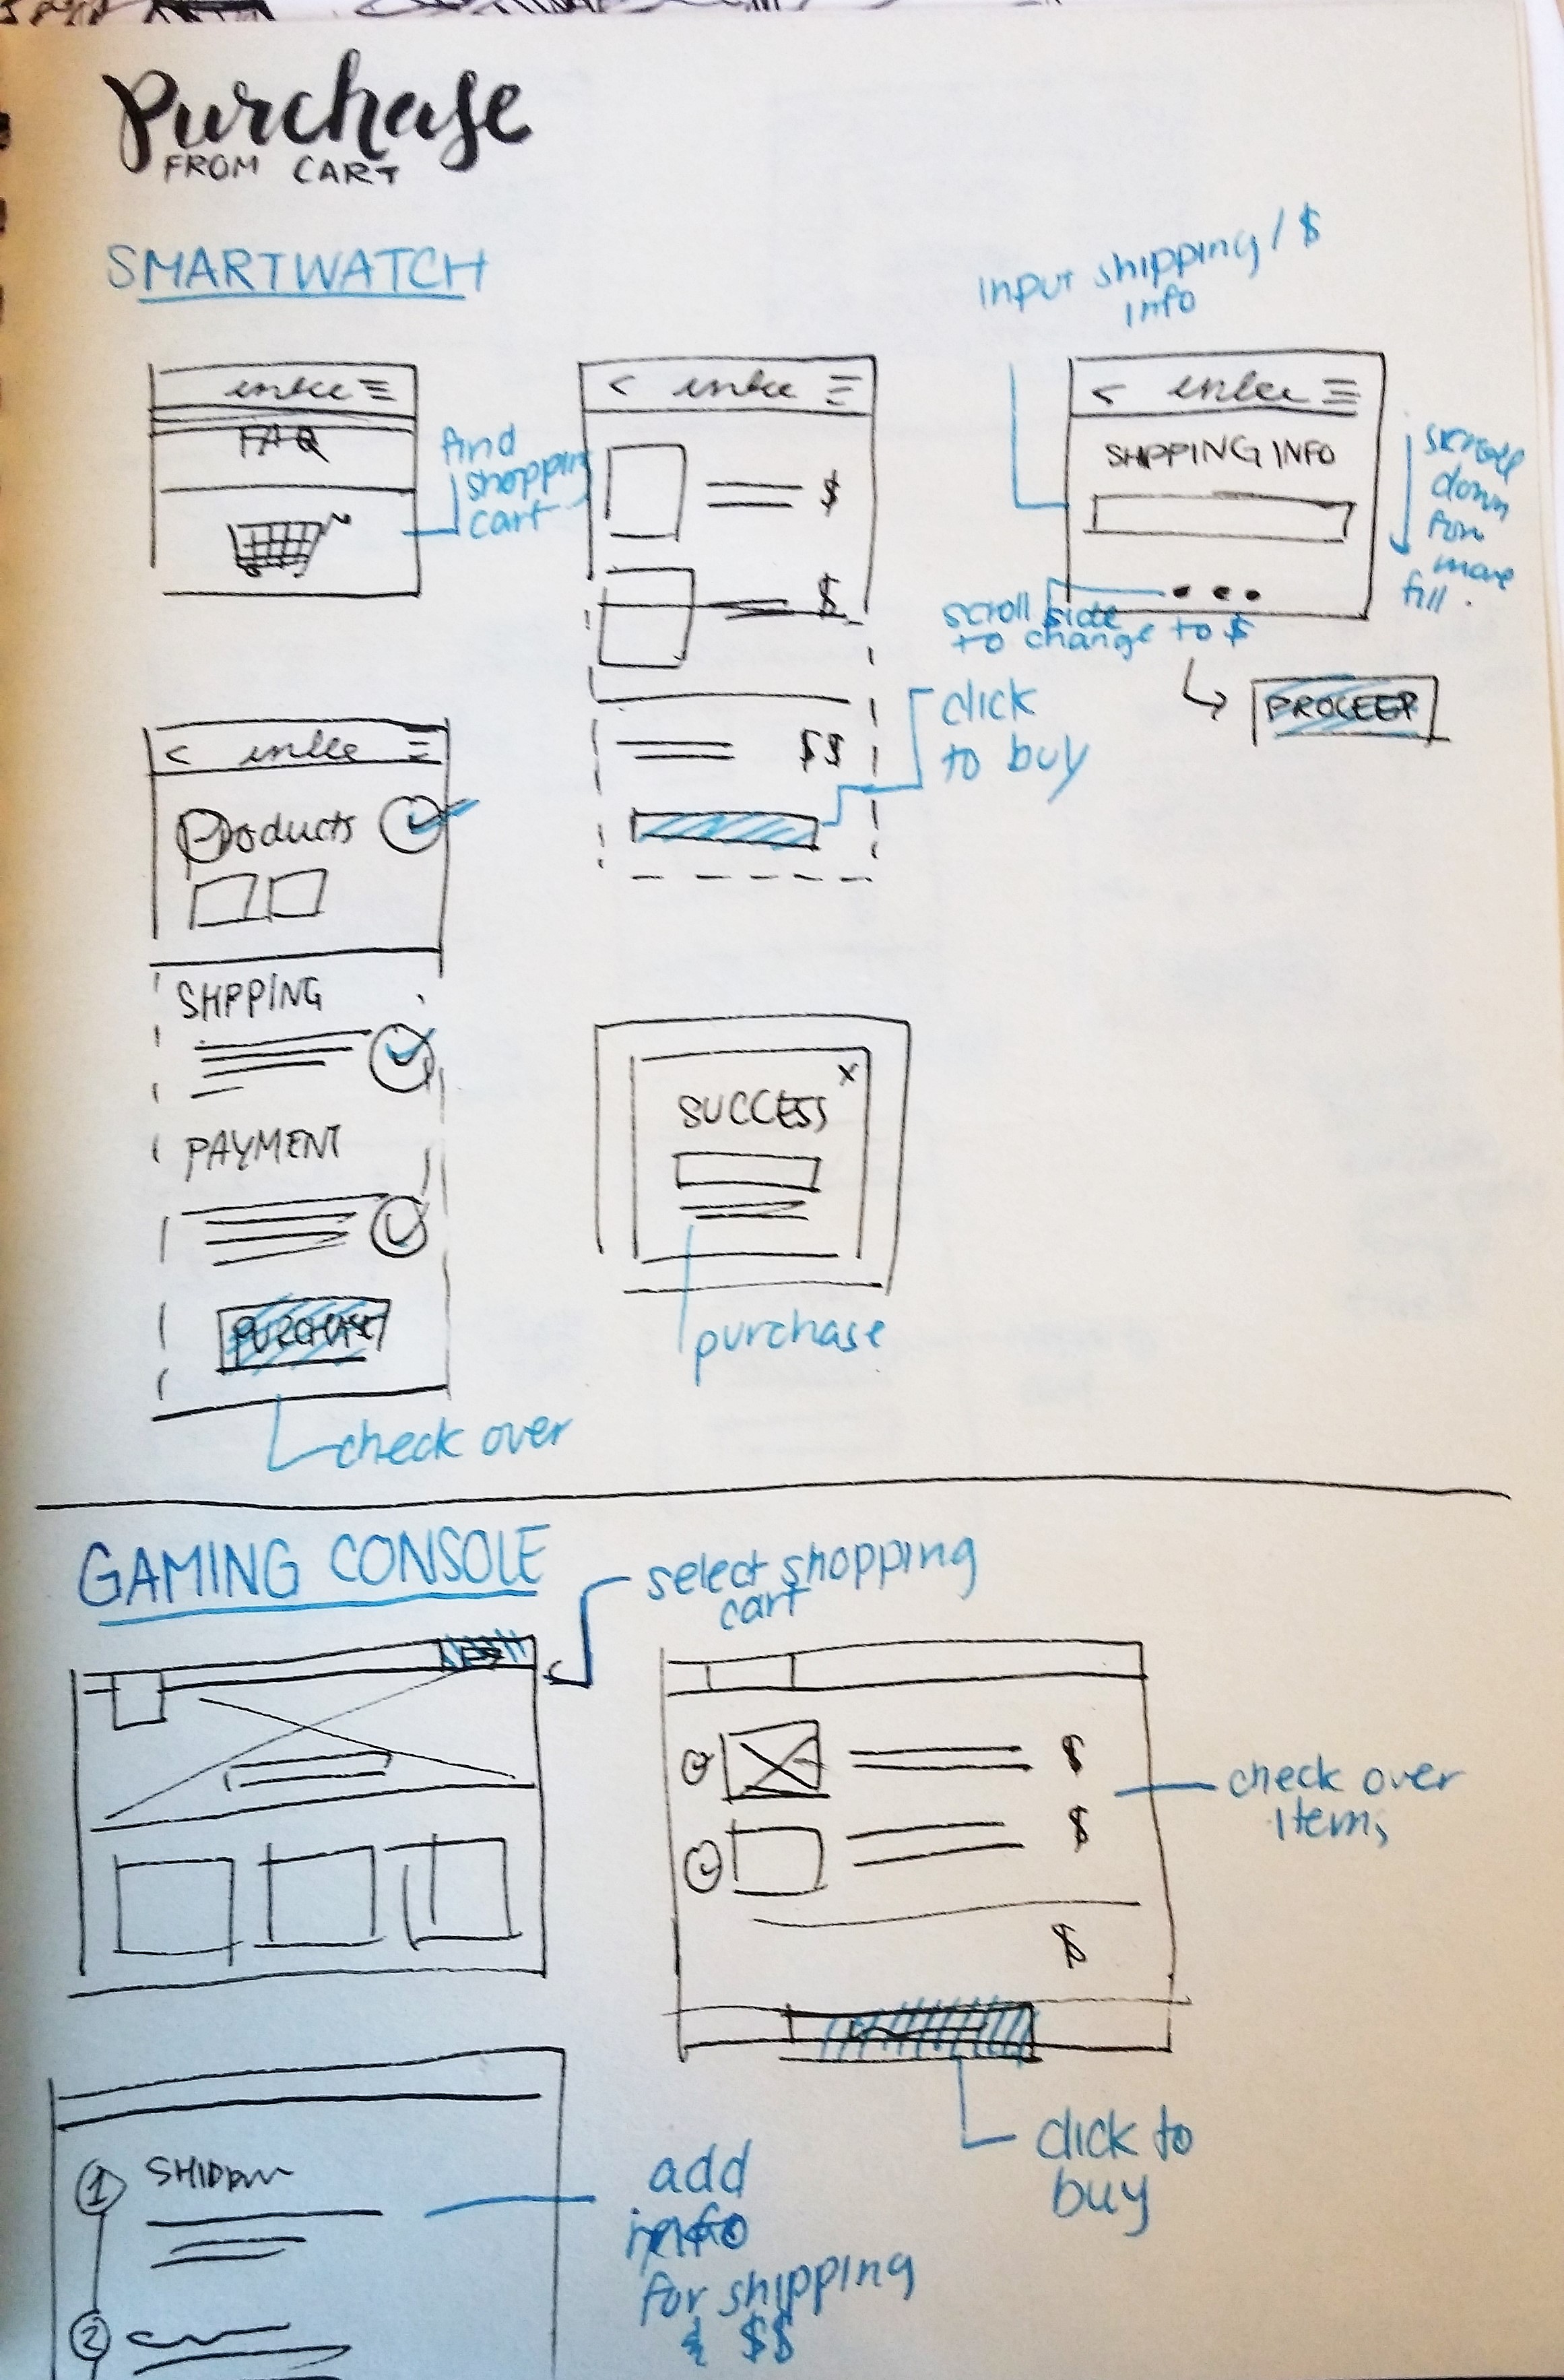 Purchase
FROM CART
SMARTWATCH
input shipping / $
info
FAQ
find
shopping
cart
$
$
$$
click
to buy
SHIPPING INFO
scroll
down
for
more
fill.
scroll side
to change to $
PROCEED
Products
SHIPPING
PAYMENT
PURCHASE
check over
SUCCESS
x
purchase
GAMING CONSOLE
select shopping
cart
$
$
$
check over
items
click to
buy
1
add
info
for shipping
& $$
2